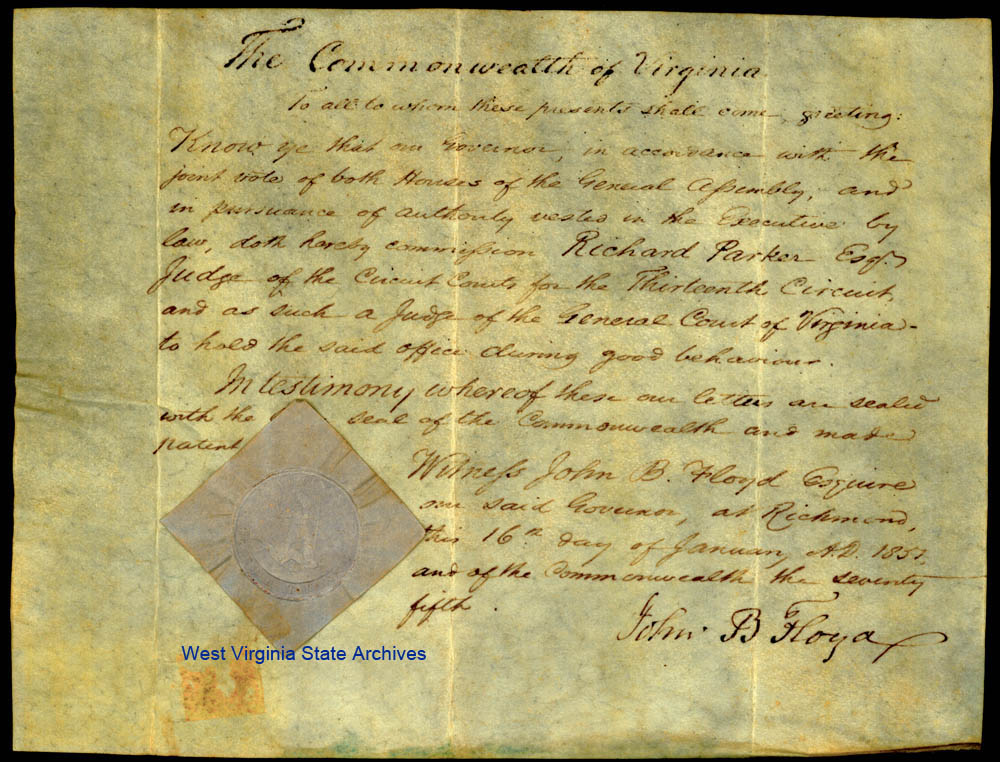 The Commonwealth of Virginia
To all to whom these presents shall come, greeting:
Know ye that our Governor, in accordance with the
joint vote of both Houses of the General Assembly, and
in pursuance of authority vested in the Executive by
law, doth hereby commission Richard Parker Esqr.
Judge of the Circuit Courts for the Thirteenth Circuit,
and as such a Judge of the General Court of Virginia-
to hold the said office during good behaviour.
In testimony whereof these our letters are sealed
with the seal of the Commonwealth and made
patent
Witness John B. Floyd Esquire
our said Governor, at Richmond,
this 16th day of January, A.D. 1851,
and of the Commonwealth the seventy
fifth.
John B Floyd
West Virginia State Archives